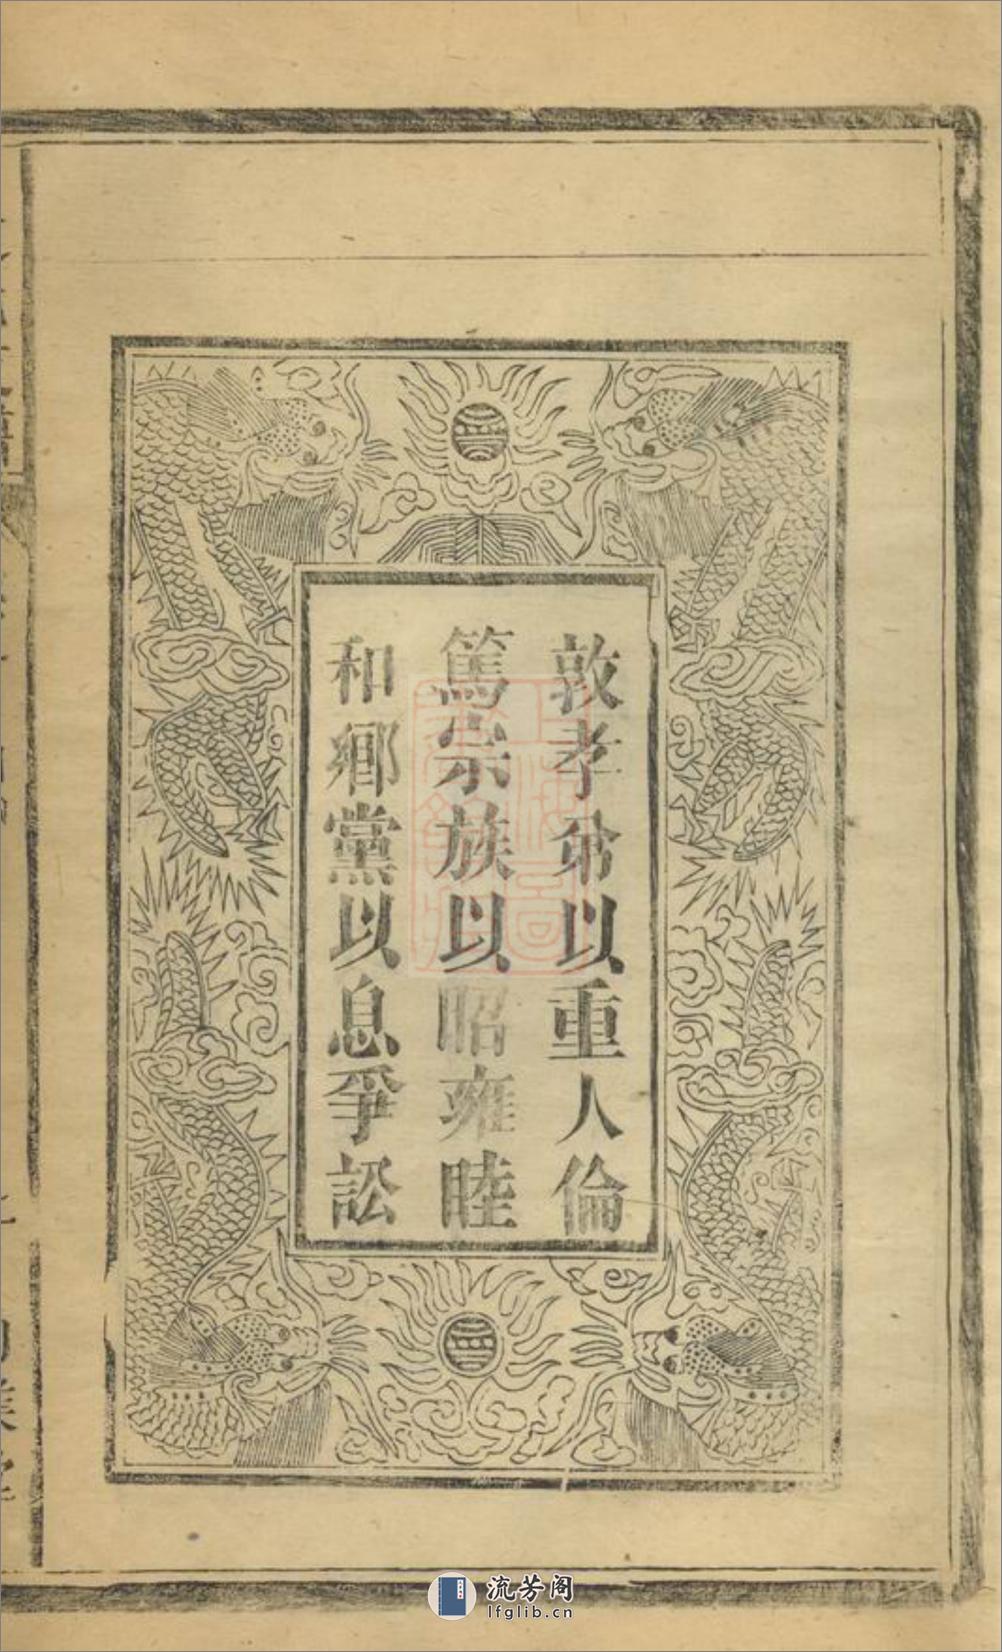 敦孝弟以重人倫
篤宗族以昭雍睦
和鄉黨以息爭訟
流芳阁
lfglib.cn